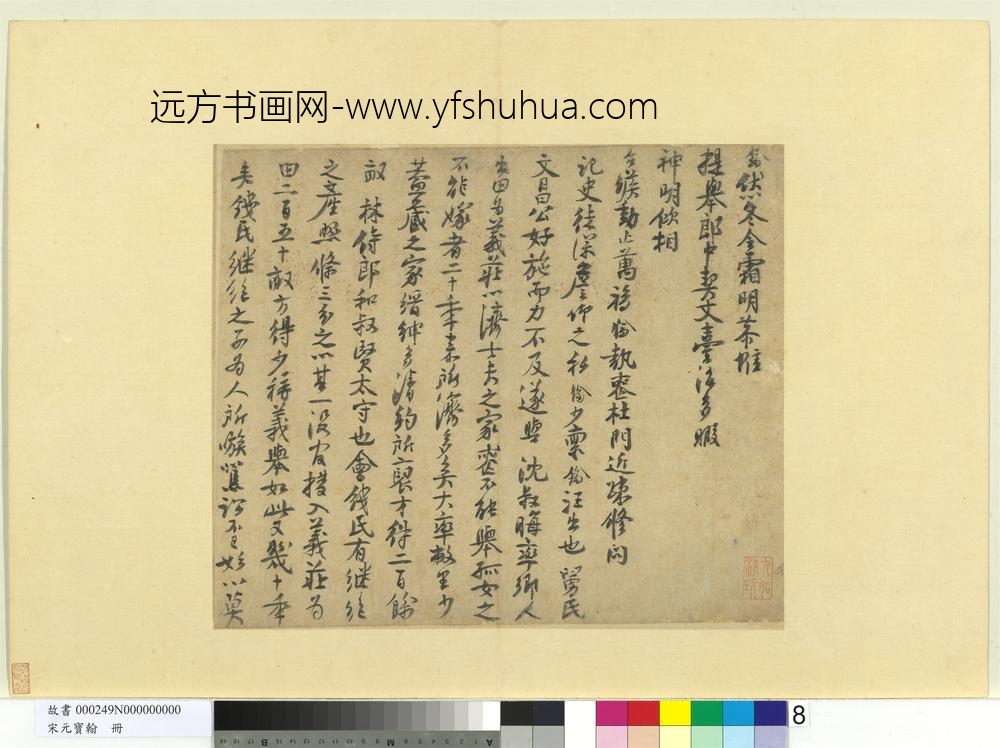 远方书画网-www.yfshuhua.com
鑰伏以冬令霜明恭惟
提舉郎中契丈臺治多暇
神明攸相
台候動止萬福鑰執喪杜門近疎修問
記史徒深詹仰之私鑰少稟鑰汪出也舅氏
文昌公好施而力不及遂與沈叔晦率鄉人
出田為義莊以濟士夫之家喪不能舉孤女之
不能嫁者二十年來所濟多矣大率敝里少
蓋藏之家縉紳多清約所裒才得二百餘
畝林侍郎和叔賢太守也會錢氏有繼絕
之產照條三分之以其一沒官撥入義莊為
田二百五十畝方得少稱義舉如此又幾十年
矣錢氏繼絕之子為人所嗾
故書 000249N000000000
宋元寶翰 冊
B
M
A
8